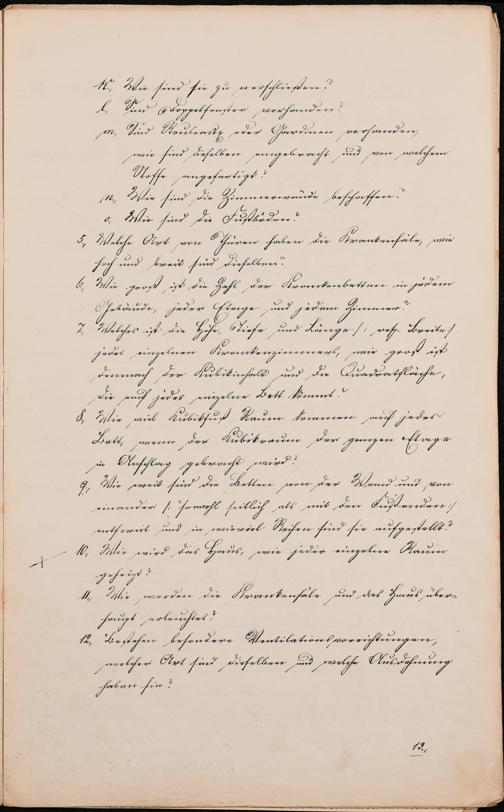 k., Wie sind sie zu verschließen?
l., Sind Doppelfenster vorhanden?
m, Sind Rouleaux oder Gardinen vorhanden,
wie sind dieselben angebracht und von welchem
Stoffe angefertigt?
n., Wie sind die Zimmerwände beschaffen?
o. Wie sind die Fußböden?
5, Welche Art von Thüren haben die Krankensäle, wie
hoch und breit sind dieselben?
6, Wie groß ist die Zahl der Krankenbetten in jedem
Gebäude, jeder Etage und jedem Zimmer?
7. Welches ist die Höhe, Tiefe und Länge /: resp. Breite :/
jedes einzelnen Krankenzimmers, wie groß ist
demnach der Kubikinhalt und die Quadratfläche,
die auf jedes einzelne Bett kommt?
8, Wie viel Kubikfuß Raum kommen auf jedes
Bett, wenn der Kubikraum der ganzen Etage
in Anschlag gebracht wird?
9, Wie weit sind die Betten von der Wand und von
einander /: sowohl seitlich als mit den Fußenden :/
entfernt und in wieviel Reihen sind sie aufgestellt?
10, Wie wird das Haus, wie jeder einzelne Raum
geheizt?
11, Wie werden die Krankensäle und das Haus über-
haupt erleuchtet?
12, Bestehen besondere Ventilationsvorrichtungen,
welcher Art sind dieselben und welche Ausdehnung
haben sie?
13.,